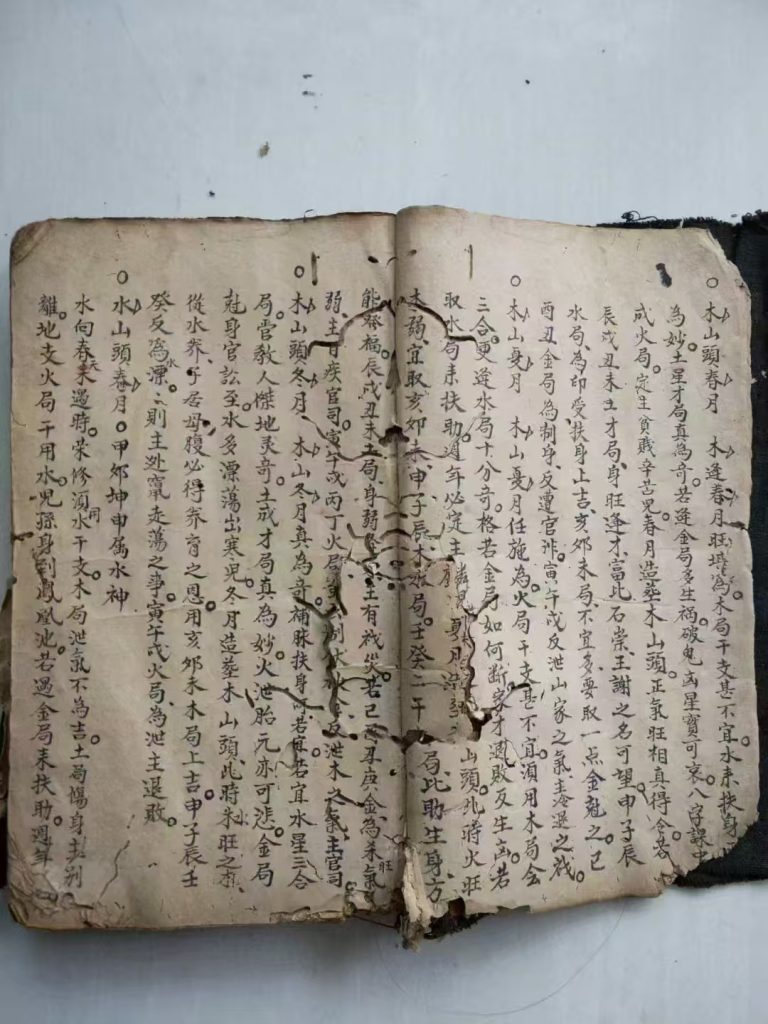 木山頭春月 木逢春月旺 為木局干支甚不宜水來扶身
為妙土星才局真為奇若逢金局多生禍破鬼凶星實可哀八字課中
成火局定主貧賤辛苦児春月造葬木山頭正氣旺相真得令若
辰戌丑未土才局身旺逢才富此石崇王謝之名可望申子辰
水局為印受扶身上吉亥夘未局不宜多要取一点金尅之巳
酉丑金局為制身反遭官非寅午戌反泄山家之氣主冷退之
木山夏月 木山夏月任施為火局干支甚不宜須用木局会
三合更逢水局十分奇格若金局如何断家才退敗反生凶若
取水局来扶助週年必定主 山頭此時火旺
木弱宜取亥夘未申子辰木水局壬癸二干 局此助生身方
能發福辰戌丑未土局身弱 主有 災若巳酉丑庚金為
弱主目疾官司寅午戌丙丁火局 反泄木之氣主官司
木山頭冬月 木山冬月真為奇補脉扶身 若宜若宜水星三合
局管教人傑地灵奇土成才局真為妙火泄胎元亦可悲金局
尅身官訟至水多漂蕩出寒児冬月造葬木山頭此時 旺之木
從水养子居母腹必得养育之恩用亥夘未木局上吉申子辰壬
癸反為漂水漂則主逃竄走蕩之事寅午戌火局為泄主退敗
水山頭春月 甲夘坤申属水神
水向春天來過時荣修須同水干支木局泄氣不為吉土局傷身 別
離地支火局干用水児孫身到鳳凰池若遇金局来扶助週年